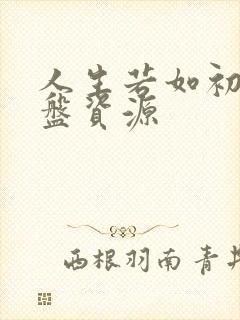 人生若如初
盘资源
西根羽南青